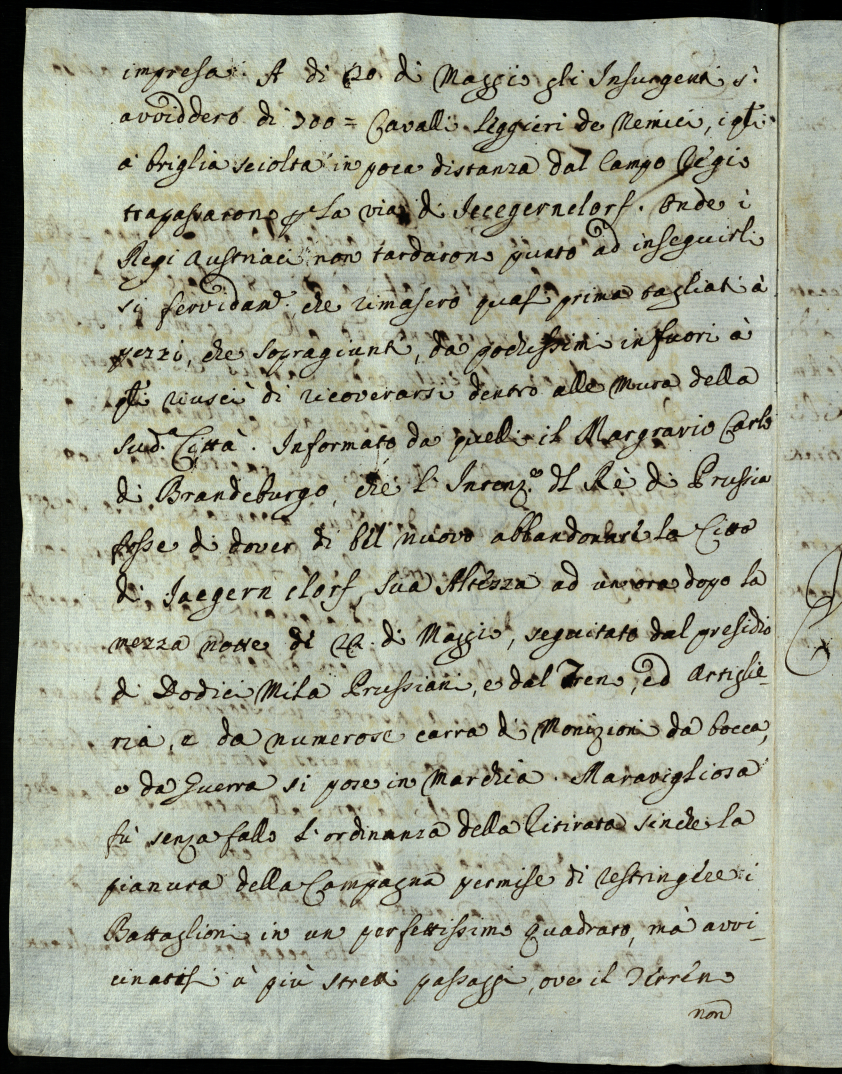 impresa. A di 20 di Maggio gli Insurgenti si
avviddero di 300 = Cavalli Leggieri de Nemici, i qli
a briglia sciolta in poca distanza dal Campo Regio
trapassarono p la via di Jecegerndorf. Onde i
Regi Austriaci non tardarono punto ad inseguirli
si fervidam.e che rimasero quasi prima tagliati à
pezzi, che sopragiunti, da pochissimi in fuori à
qli riuscì di ricoverarsi dentro alle Mura della
sud.a Città. Informato da quelli il Margravio Carlo
di Brandeburgo, che l'Intenz.e dl Rè di Prussia
fosse di dover di bel nuovo abbandonare la Città
di Jaegerndorf, Sua Altezza ad un'ora dopo la
mezza notte di 22 di Maggio, seguitato dal presidio
di Dodici Mila Prussiani, e dal Treno, ed Artiglie=
ria, e da numerose carra di Monizioni da bocca,
e da Guerra si pose in Marchia. Maravigliosa
fù senza fallo l'ordinanza della Ritirata sinche la
pianura della Campagna permise di restringere i
Battaglioni in un perfettissimo quadrato, mà avvi=
cinatisi à più stretti passaggi, ove il Terreno
non